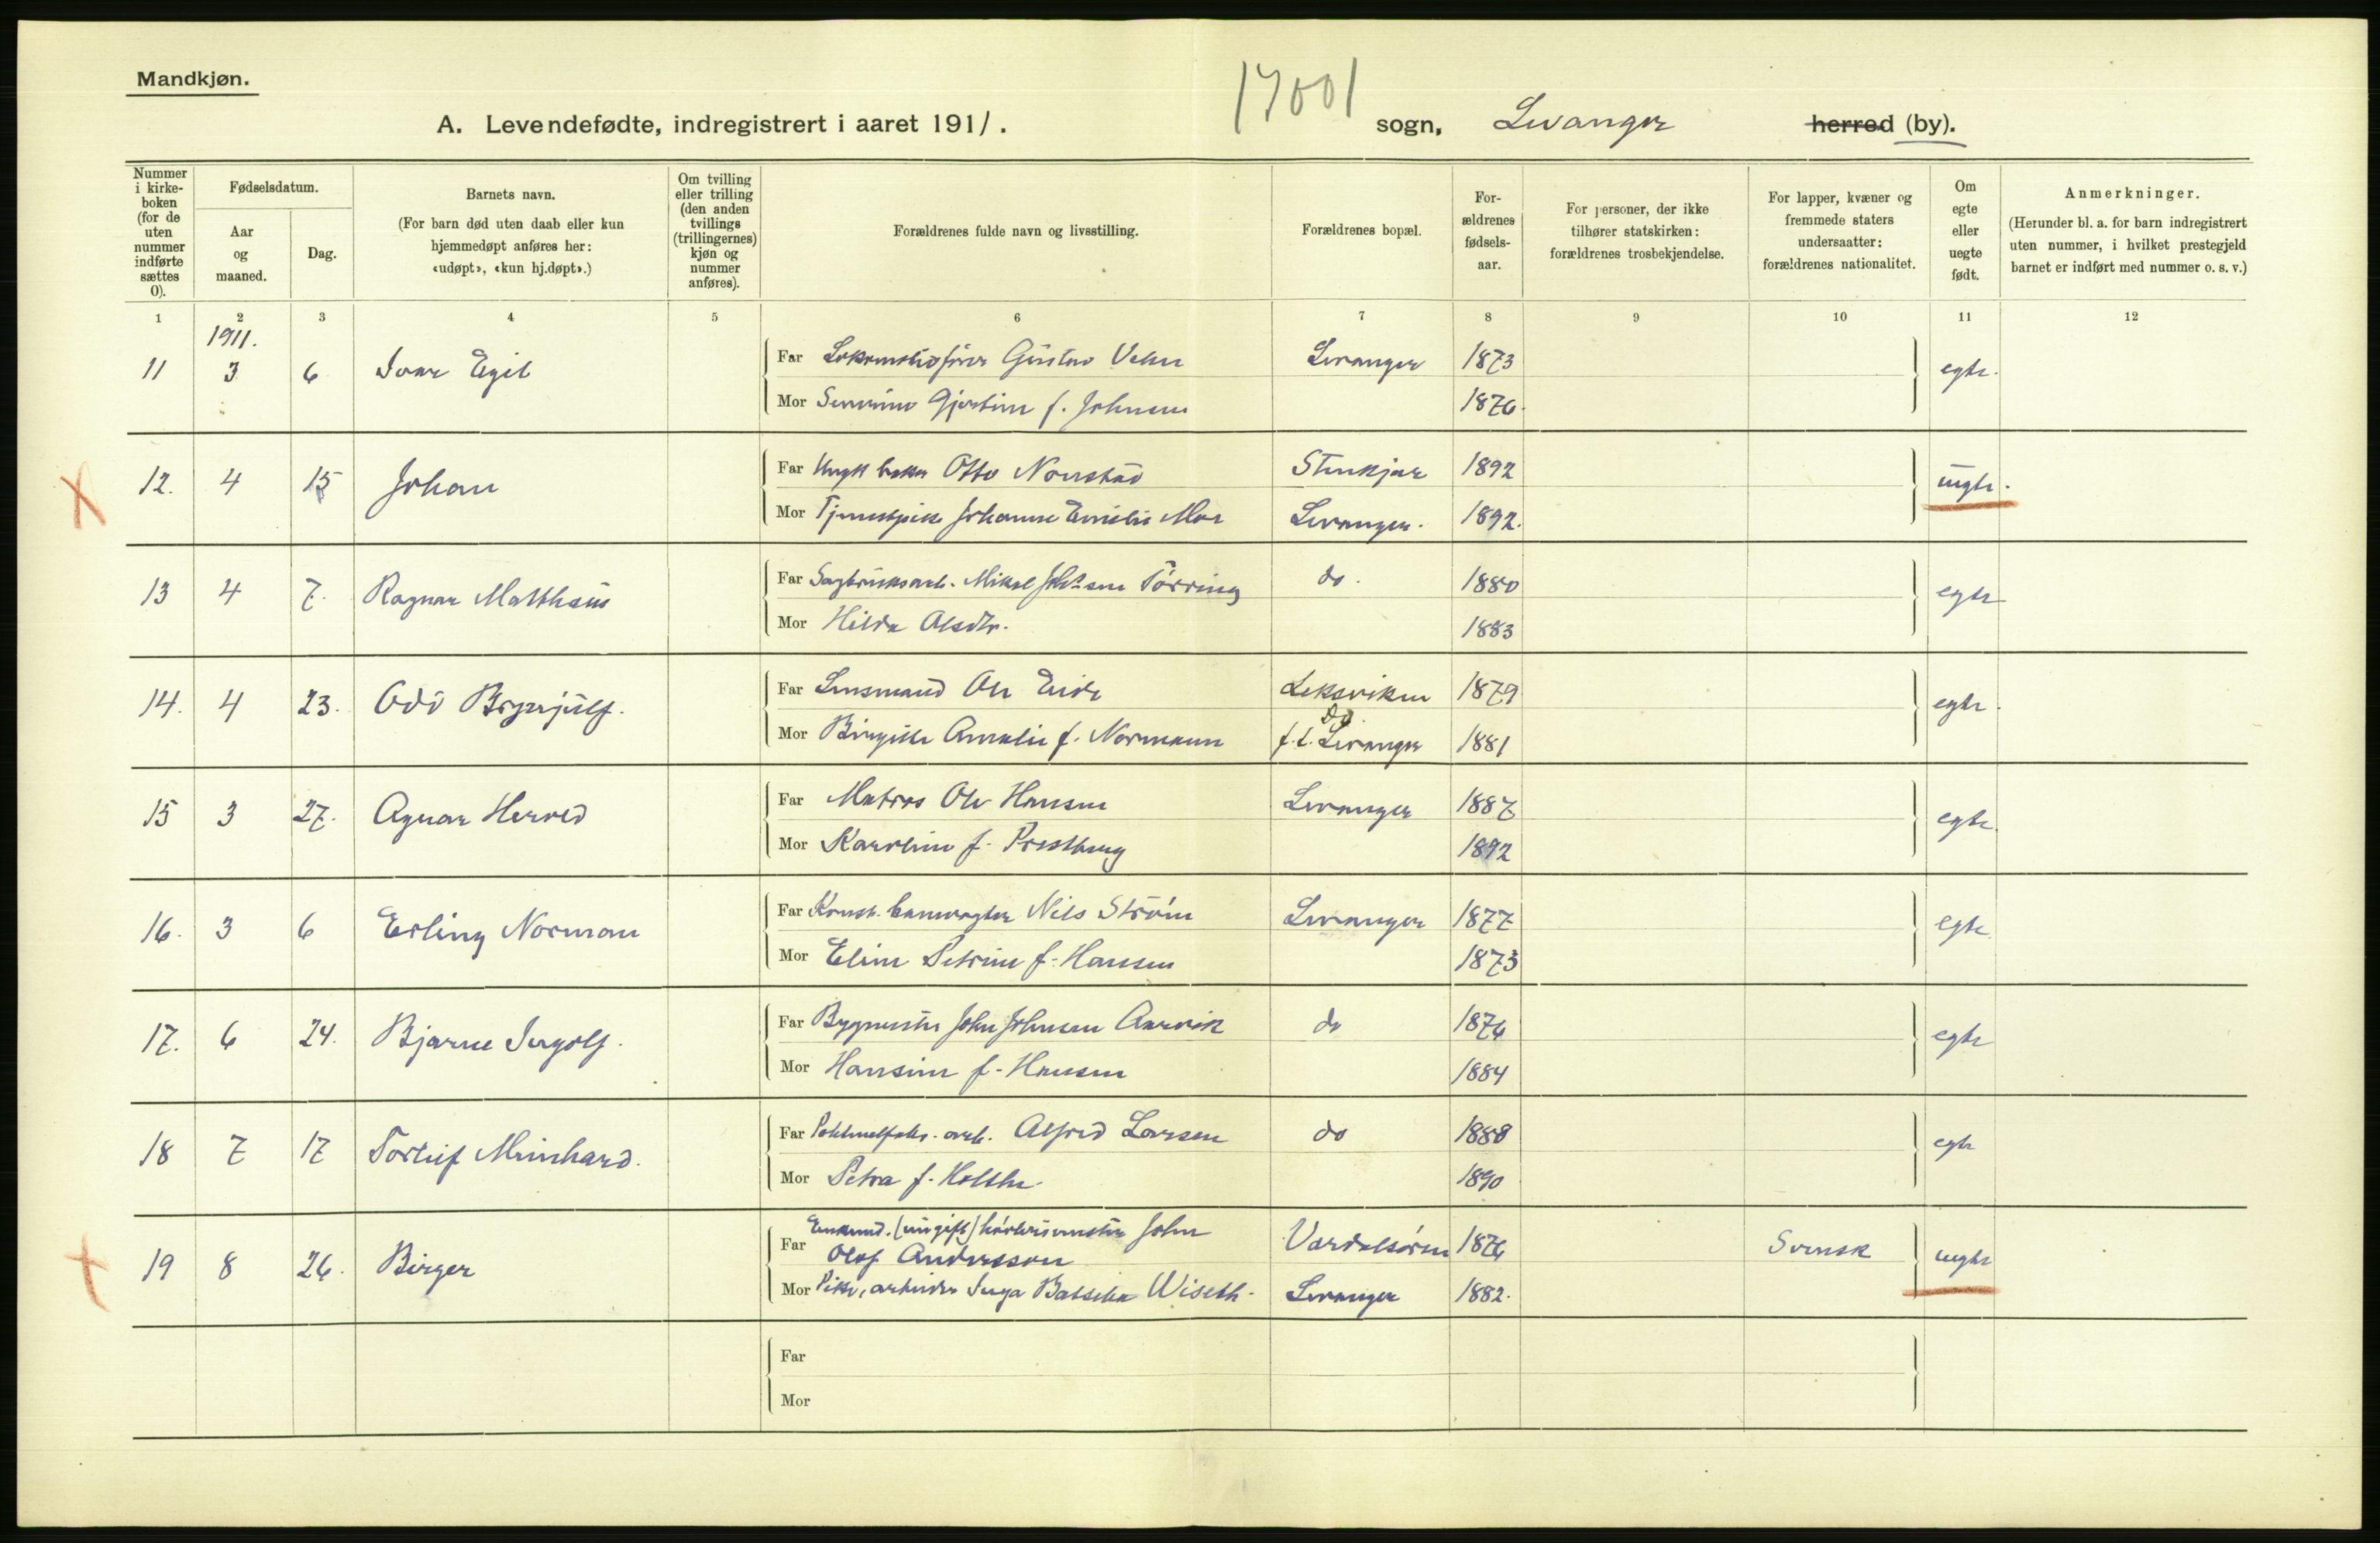 Mandkjøn.
17001
A. Levendefødte, indregistrert i aaret 1911. sogn, Levanger herred (by).
Nummer i kirkeboken (for de uten nummer indførte sættes 0).
Fødselsdatum.
Aar og maaned.
Dag.
Barnets navn.
(For barn død uten daab eller kun hjemmedøpt anføres her: «udøpt», «kun hj.døpt».)
Om tvilling eller trilling (den anden tvillings (trillingernes) kjøn og nummer anføres).
Forældrenes fulde navn og livsstilling.
Forældrenes bopæl.
For-ældrenes fødsels-aar.
For personer, der ikke tilhører statskirken: forældrenes trosbekjendelse.
For lapper, kvæner og fremmede staters undersaatter: forældrenes nationalitet.
Om egte eller uegte født.
Anmerkninger.
(Herunder bl. a. for barn indregistrert uten nummer, i hvilket prestegjeld barnet er indført med nummer o. s. v.)
1 2 3 4 5 6 7 8 9 10 11 12
1911.
11 3 6 Ivar Egil Far Lokomotivfører Gustav Levanger 1873 egte.
Mor Severine Gjertine f. Johnsen 1876.
12. 4 15 Johan Far Ungk. baker Otto Stenkjær 1892 uegte.
Mor Tjenestpike Johanne Emelie Moe Levanger. 1892.
13 4 7. Ragnar Matthæus Far Sagbruksarb. Mikal Tørring do. 1880 egte
Mor Hilda Olsdtr. 1883
14. 4 23. Odd Brynjulf. Far Lensmand Ole Eide Leksviken 1879 egte.
do.
Mor Birgitte Amalie f. Normann f.t. Levanger 1881
15 3 27. Agnar Herved Far Matros Ole Hansen Levanger 1887 egte.
Mor Karoline f. Prestberg 1892
16. 3 6 Erling Norman Far Konst. banevogter Nils Strøm Levanger 1877 egte.
Mor Eline Petrine f. Hansen 1873
17. 6 24. Bjarne Ingolf. Far Bygmester John Johnsen Aarvik do 1876 egte
Mor Hansine f. Hansen 1884
18 7 17 Torleif Meinhard. Far arb. Alfred Larsen do 1888 egte
Mor Petra f. Holthe 1890
19 8 26. Birger Far Enkemd. (ungift) John Olof Andersson Værdalsøren 1876 Svensk uegte
Mor Pike, arbeider Inga Wiseth. Levanger 1882.
Far
Mor